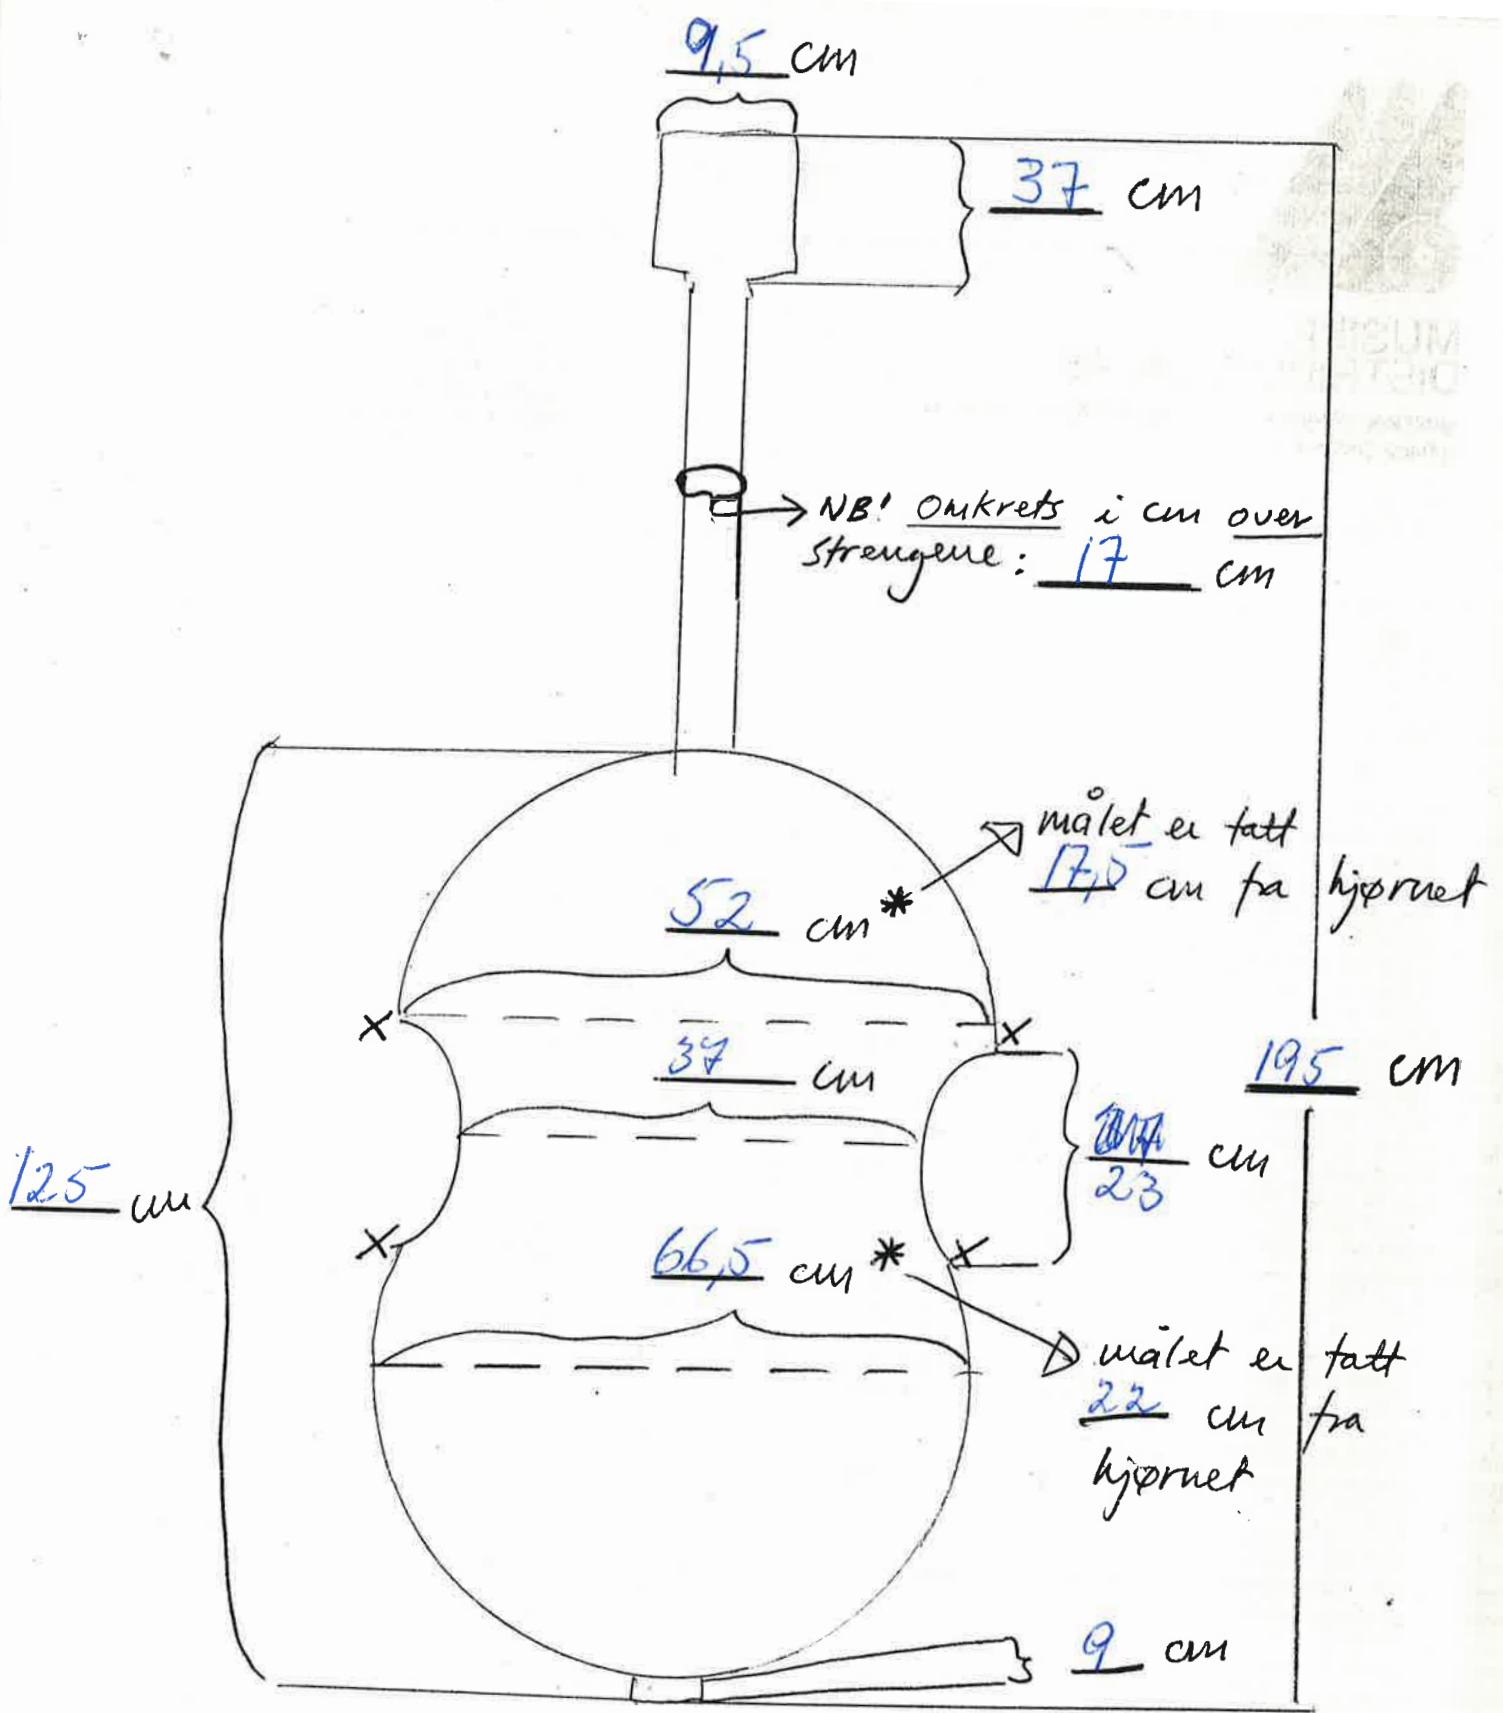 9,5 cm
37 cm
MUSIKK
NB! Omkrets i cm over
strengene: 17 cm
målet er tatt
17,5 cm fra hjørnet
52 cm *
X X
37 cm
195 cm
23 cm
125 cm
X X
66,5 cm *
målet er tatt
22 cm fra
hjørnet
9 cm